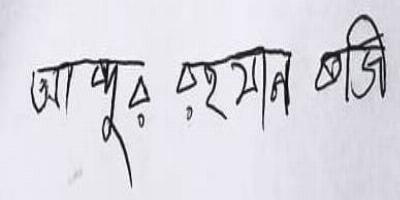 আব্দুর রহমান কাজি